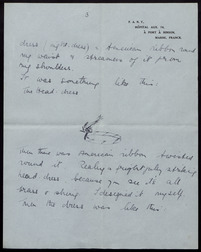 3
F.A.N.Y.
HÔPITAL AUX. 76,
À PORT À BINSON,
MARNE, FRANCE.
dress (nightdress) & American ribbon round
my waist & streamers of it from
my shoulders.
It was something like this.
as head-dress
American ribbon twisted
round it. Really a frightfully striking
head dress because you see it's all
stars & string. I designed it myself.
the dress was like this